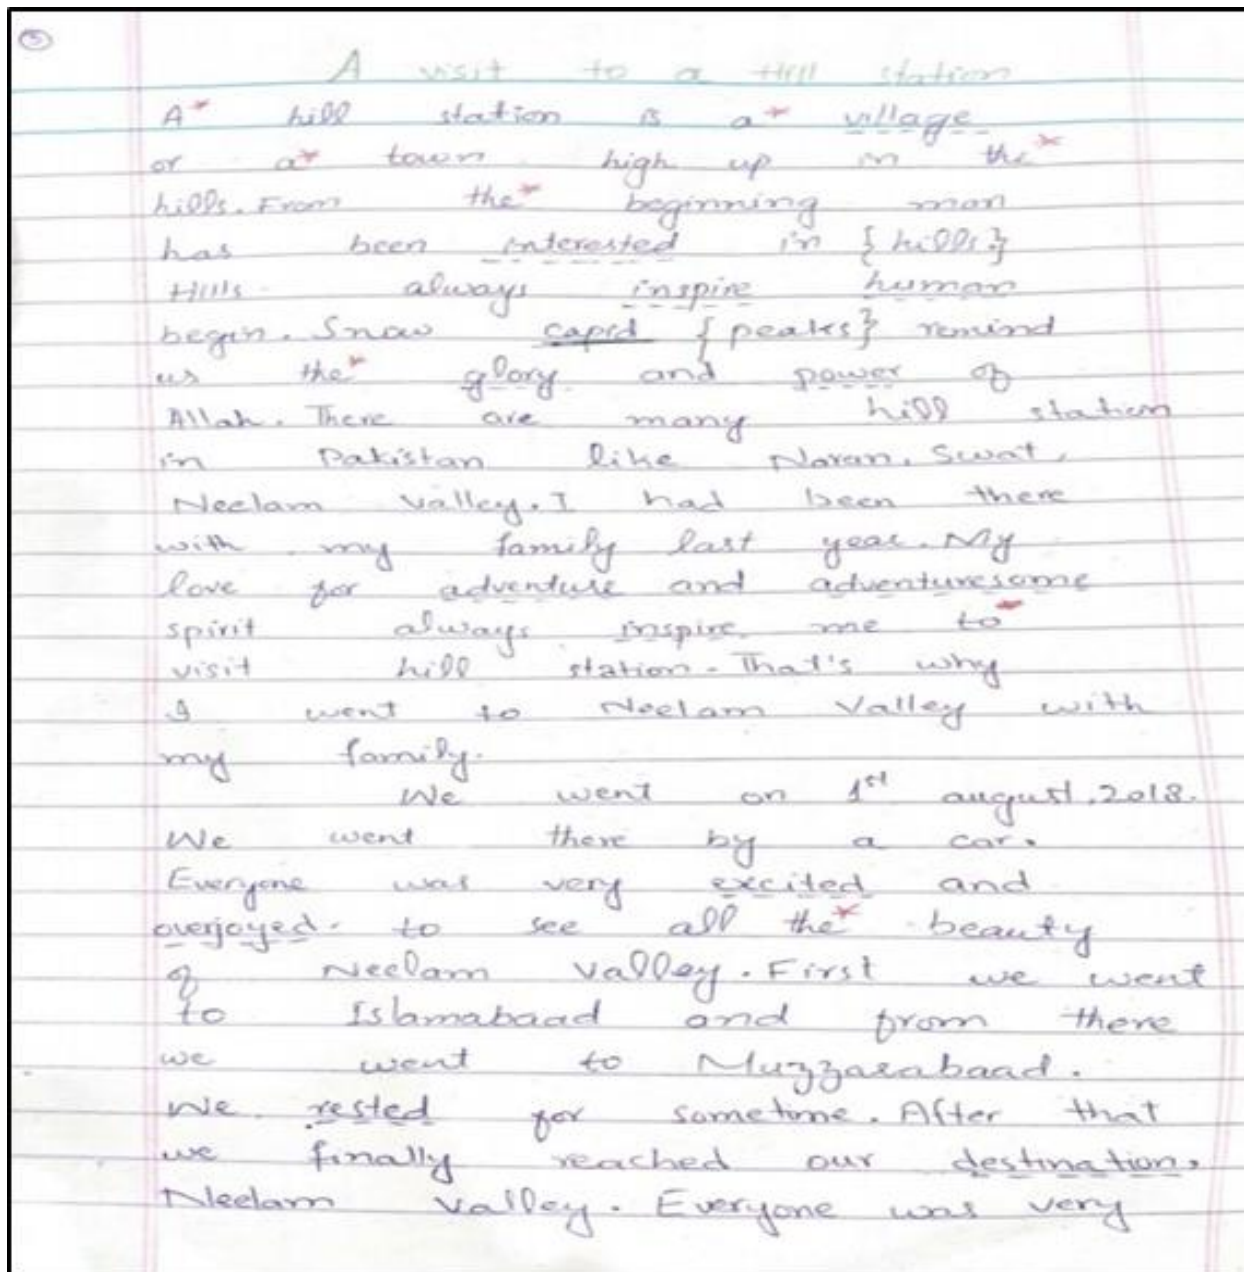 5
A visit to a Hill station
A* hill station is a* village
or a* town high up in the*
hills. From the* beginning man
has been interested in {hills}
Hills always inspire human
begin. Snow capid {peaks} remind
us the* glory and power of
Allah. There are many hill station
in Pakistan like Naran, Swat,
Neelam Valley. I had been there
with my family last year. My
love for adventure and adventuresome
spirit always inspire me to*
visit hill station. That's why
I went to Neelam Valley with
my family.
We went on 1st august, 2018.
We went there by a car.
Everyone was very excited and
overjoyed. to see all the* beauty
of Neelam Valley. First we went
to Islamabaad and from there
we went to Muzzarabaad.
We rested for sometime. After that
we finally reached our destination,
Neelam Valley. Everyone was very